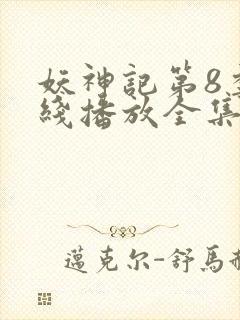 妖神記第8
綫播放全集
邁克尔-舒馬赫